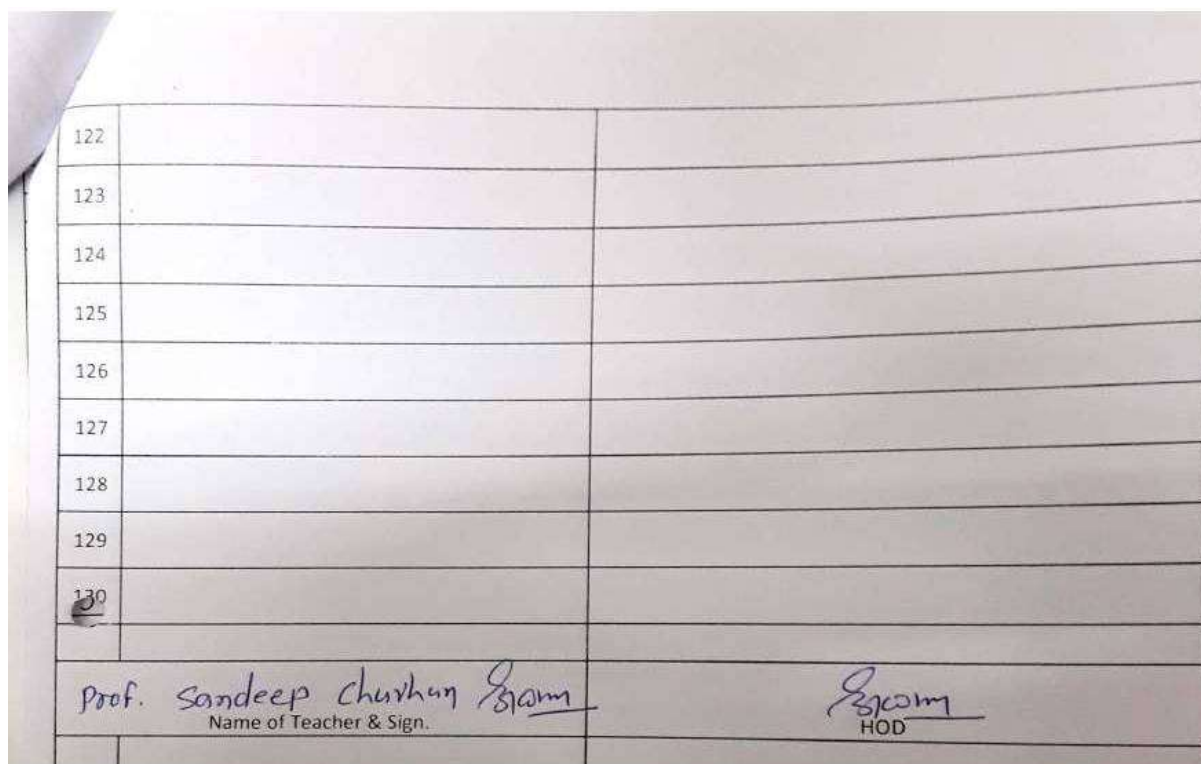 122
123
124
125
126
127
128
129
130
Prof. Sandeep Chavhan
Name of Teacher & Sign.
HOD